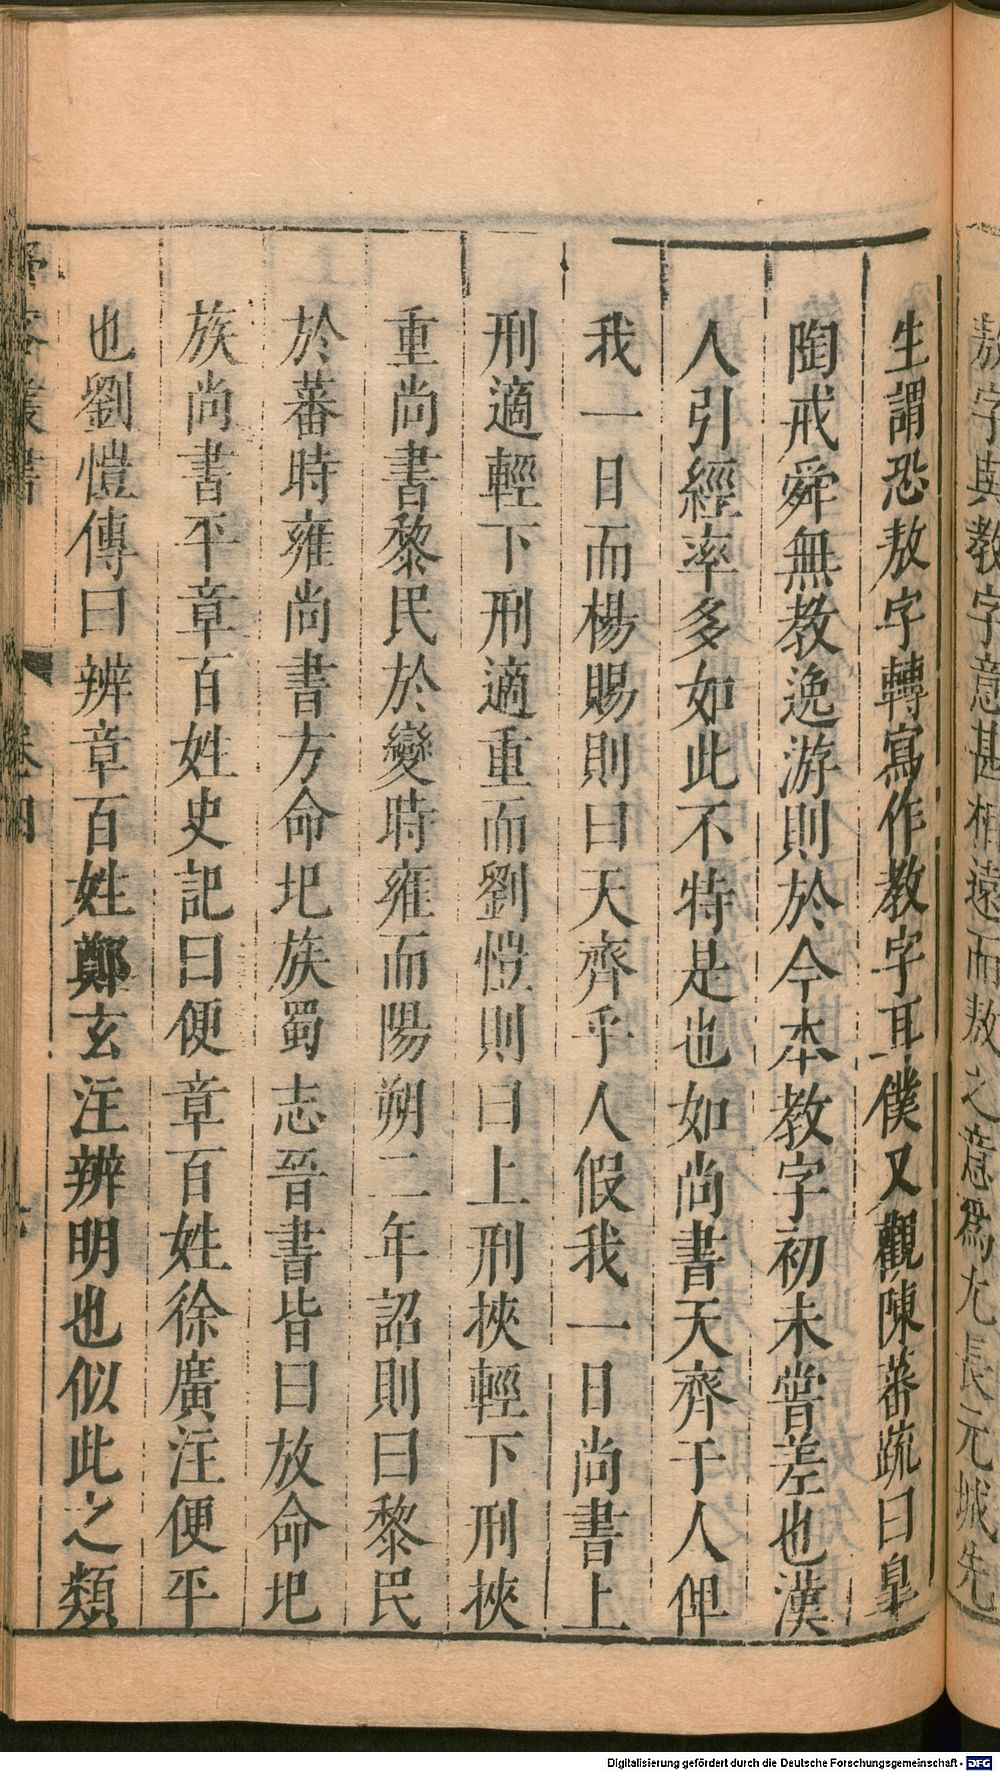 敖字與教字意甚相遠而敖之意爲尤長元城先
生謂恐敖字轉寫作教字耳僕又觀陳蕃疏曰臯
陶戒舜無教逸游則於今本教字初未嘗差也漢
人引經率多如此不特是也如尚書天齊于人俾
我一日而楊賜則曰天齊乎人假我一日尚書上
刑適輕下刑適重而劉愷則曰上刑挾輕下刑挾
重尚書黎民於變時雍而陽朔二年詔則曰黎民
於蕃時雍尚書方命圯族蜀志晉書皆曰放命圯
族尚書平章百姓史記曰便章百姓徐廣注便平
也劉愷傳曰辨章百姓鄭玄注辨明也似此之類
卷四
Digitalisierung gefördert durch die Deutsche Forschungsgemeinschaft - DFG